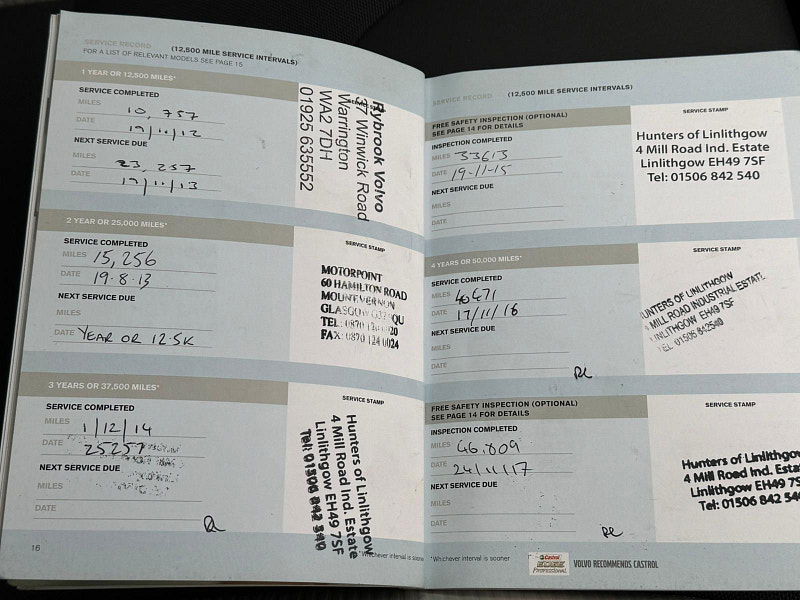 SERVICE RECORD (12,500 MILE SERVICE INTERVALS)
FOR A LIST OF RELEVANT MODELS SEE PAGE 15
1 YEAR OR 12,500 MILES*
SERVICE COMPLETED
MILES 10,757
DATE 19/10/12
NEXT SERVICE DUE
MILES 23,257
DATE 19/11/13
SERVICE STAMP
Rybrook Volvo
37 Winwick Road
Warrington
WA2 7DH
01925 635552
2 YEAR OR 25,000 MILES*
SERVICE COMPLETED
MILES 15,256
DATE 19.8.13
NEXT SERVICE DUE
MILES
DATE YEAR OR 12.5K
SERVICE STAMP
MOTORPOINT
60 HAMILTON ROAD
MOUNT VERNON
GLASGOW
TEL: 0870 124 0020
FAX: 0870 124 0024
3 YEARS OR 37,500 MILES*
SERVICE COMPLETED
MILES 1/12/14
DATE 25257
NEXT SERVICE DUE
MILES
DATE
SERVICE STAMP
Hunters of Linlithgow
4 Mill Road Ind. Estate
Linlithgow EH49 7SF
Tel: 01506 842 540
16
*Whichever interval is soone
SERVICE RECORD (12,500 MILE SERVICE INTERVALS)
FREE SAFETY INSPECTION (OPTIONAL)
SEE PAGE 14 FOR DETAILS
INSPECTION COMPLETED
MILES 33613
DATE 19-11-15
NEXT SERVICE DUE
MILES
DATE
SERVICE STAMP
Hunters of Linlithgow
4 Mill Road Ind. Estate
Linlithgow EH49 7SF
Tel: 01506 842 540
4 YEARS OR 50,000 MILES*
SERVICE COMPLETED
MILES 40471
DATE 17/11/16
NEXT SERVICE DUE
MILES
DATE
SERVICE STAMP
UNTERS OF LINLITHGOW
MILL ROAD INDUSTRIAL ESTATE
LINLITHGOW EH49 7SF
TEL 01506 842540
FREE SAFETY INSPECTION (OPTIONAL)
SEE PAGE 14 FOR DETAILS
INSPECTION COMPLETED
MILES 46,809
DATE 24/11/17
NEXT SERVICE DUE
MILES
DATE
SERVICE STAMP
Hunters of Linlithgow
4 Mill Road Ind. Esta
Linlithgow EH49 7S
Tel: 01506 842 540
*Whichever interval is sooner
Castrol
EDGE
Professional
VOLVO RECOMMENDS CASTROL